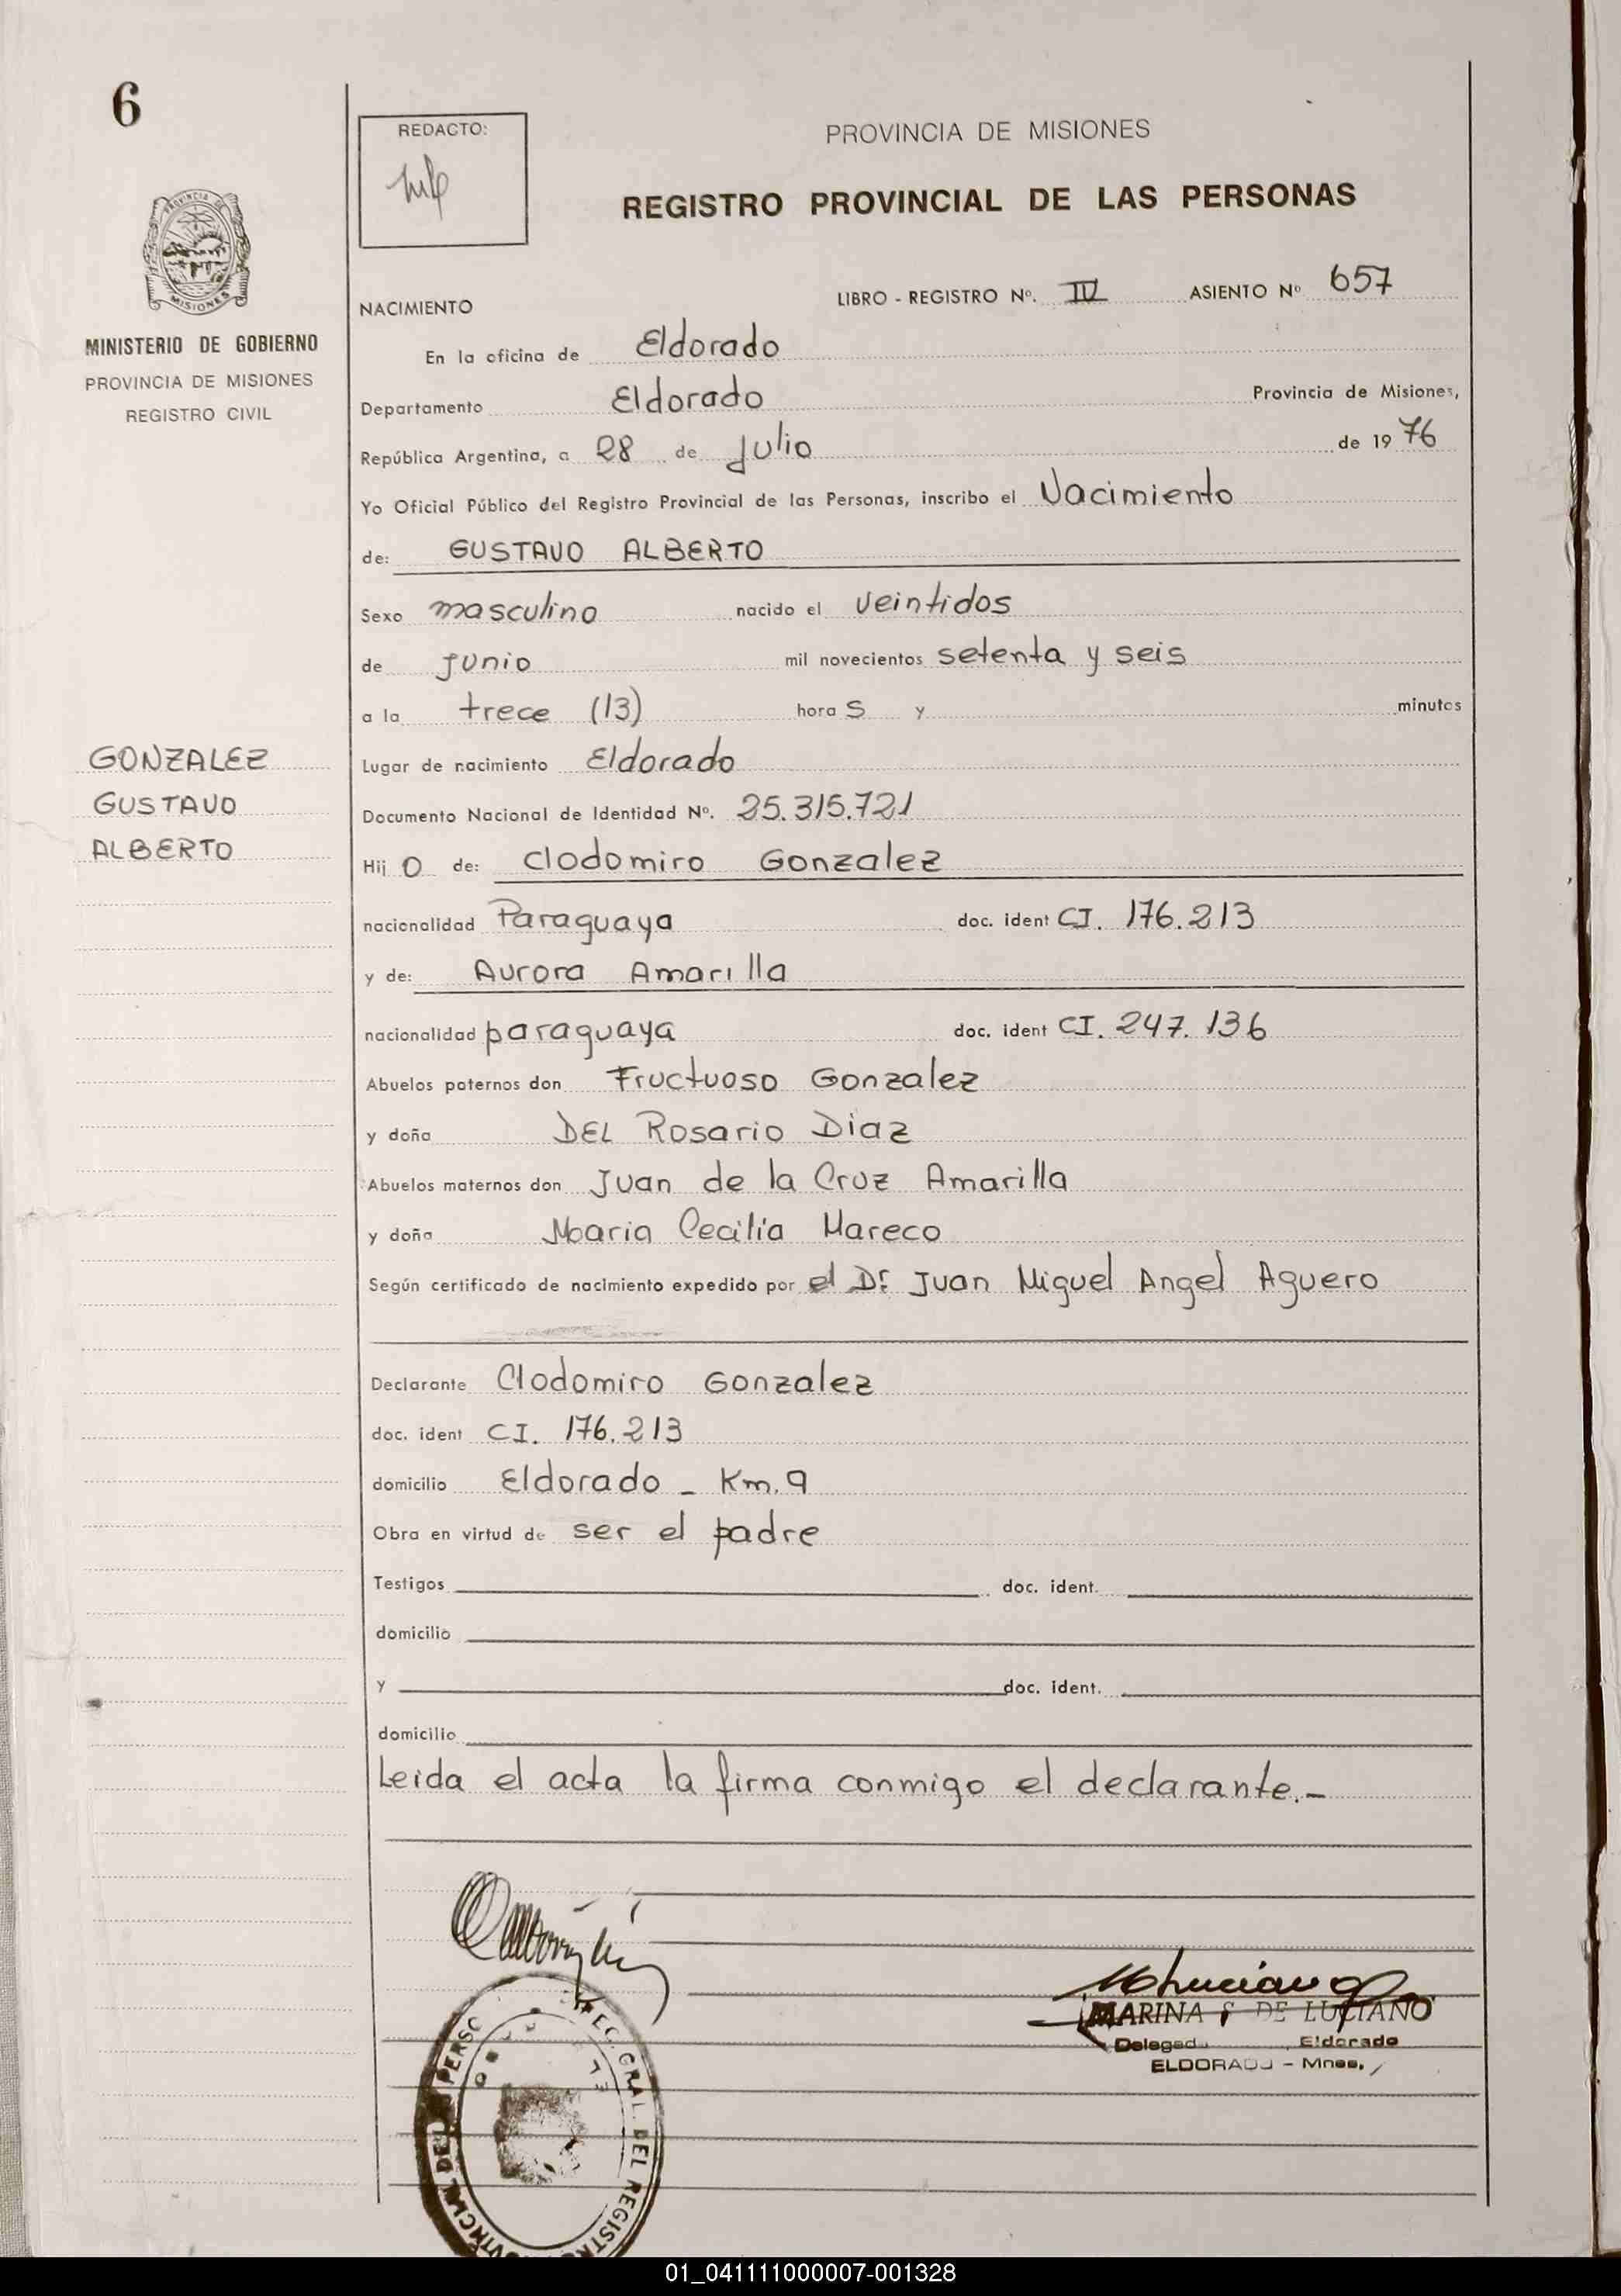 6
REDACTO:
PROVINCIA DE MISIONES
REGISTRO PROVINCIAL DE LAS PERSONAS
PROVINCIA DE
MISIONES
MINISTERIO DE GOBIERNO
PROVINCIA DE MISIONES
REGISTRO CIVIL
LIBRO - REGISTRO Nº. IV ASIENTO Nº 657
NACIMIENTO
En la oficina de Eldorado
Departamento Eldorado Provincia de Misiones,
República Argentina, a 28 de Julio de 1976
Yo Oficial Público del Registro Provincial de las Personas, inscribo el Nacimiento
de: GUSTAVO ALBERTO
Sexo masculino nacido el veintidos
de junio mil novecientos setenta y seis
a la trece (13) hora s y minutos
GONZALEZ
GUSTAVO
ALBERTO
Lugar de nacimiento Eldorado
Documento Nacional de Identidad Nº. 25.315.721
Hij o de: Clodomiro Gonzalez
nacionalidad Paraguaya doc. ident CI. 176.213
y de: Aurora Amarilla
nacionalidad paraguaya doc. ident CI. 247.136
Abuelos paternos don Fructuoso Gonzalez
y doña DEL Rosario Diaz
Abuelos maternos don Juan de la Cruz Amarilla
y doña Maria Cecilia Mareco
Según certificado de nacimiento expedido por el Dr. Juan Miguel Angel Aguero
Declarante Clodomiro Gonzalez
doc. ident CI. 176.213
domicilio Eldorado - Km. 9
Obra en virtud de ser el padre
Testigos doc. ident.
domicilio
y doc. ident.
domicilio
Leida el acta la firma conmigo el declarante.-
MARINA DE LUCIANO
Eldorado
ELDORADO - Mnes.
GRAL. DEL REGISTRO
01_041111000007-001328